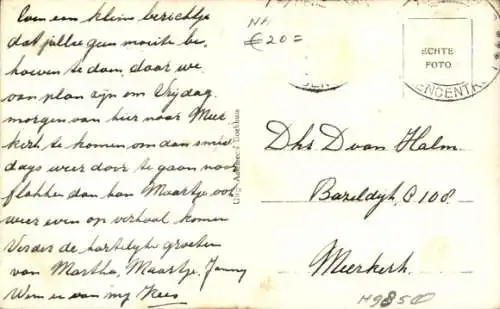 Even een klein berichtje
dat jullie geen moeite be-
hoeven te doen, daar we
van plan zijn om Vrijdag
morgen van hier naar Meer
kerk te komen om dan smid
dags weer door te gaan naar
flakkee dan kan Maartje ook
weer even op verhaal komen
Verder de hartelijke groeten
van Martha, Maartje, Janny
Wim en van mij Kees
NH
€20=
ECHTE
FOTO
Dhr D van Halm
Bazeldijk B 108
Meerkerk.
H9850